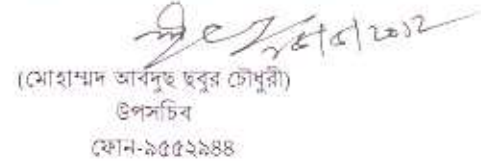 (মোহাম্মদ আবদুছ ছবুর চৌধুরী)
উপসচিব
ফোন-৯৫৫২৯৪৪